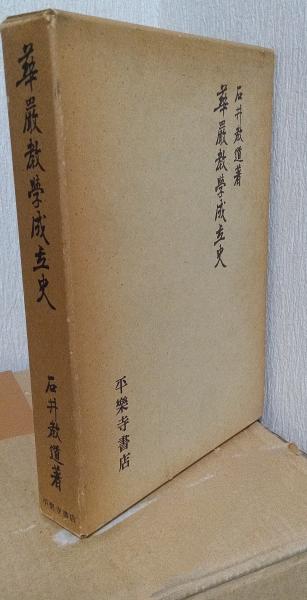 華嚴教學成立史
石井教道著
平樂寺書店
石井教道著
華嚴教學成立史
平樂寺書店